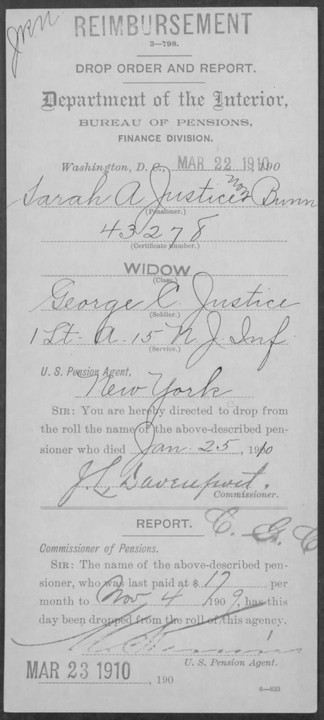 REIMBURSEMENT
3-798.
DROP ORDER AND REPORT.
Department of the Interior,
BUREAU OF PENSIONS,
FINANCE DIVISION.
Washington, D. C., MAR 22 1910, 190
Sarah A. Justice now Bunn
(Pensioner.)
43278
(Certificate number.)
WIDOW
(Class.)
George C. Justice
(Soldier.)
1 Lt. A. 15 N J Inf
(Service.)
U. S. Pension Agent.
New York
SIR: You are hereby directed to drop from
the roll the name of the above-described pen-
sioner who died Jan. 25, 1910
J. L. Davenport.
Commissioner.
REPORT.
C. G. C
Commissioner of Pensions.
SIR: The name of the above-described pen-
sioner, who was last paid at $ 12 per
month to Nov 4 1909, has this
day been dropped from the roll of this agency.
U. S. Pension Agent.
MAR 23 1910, 190
6-833